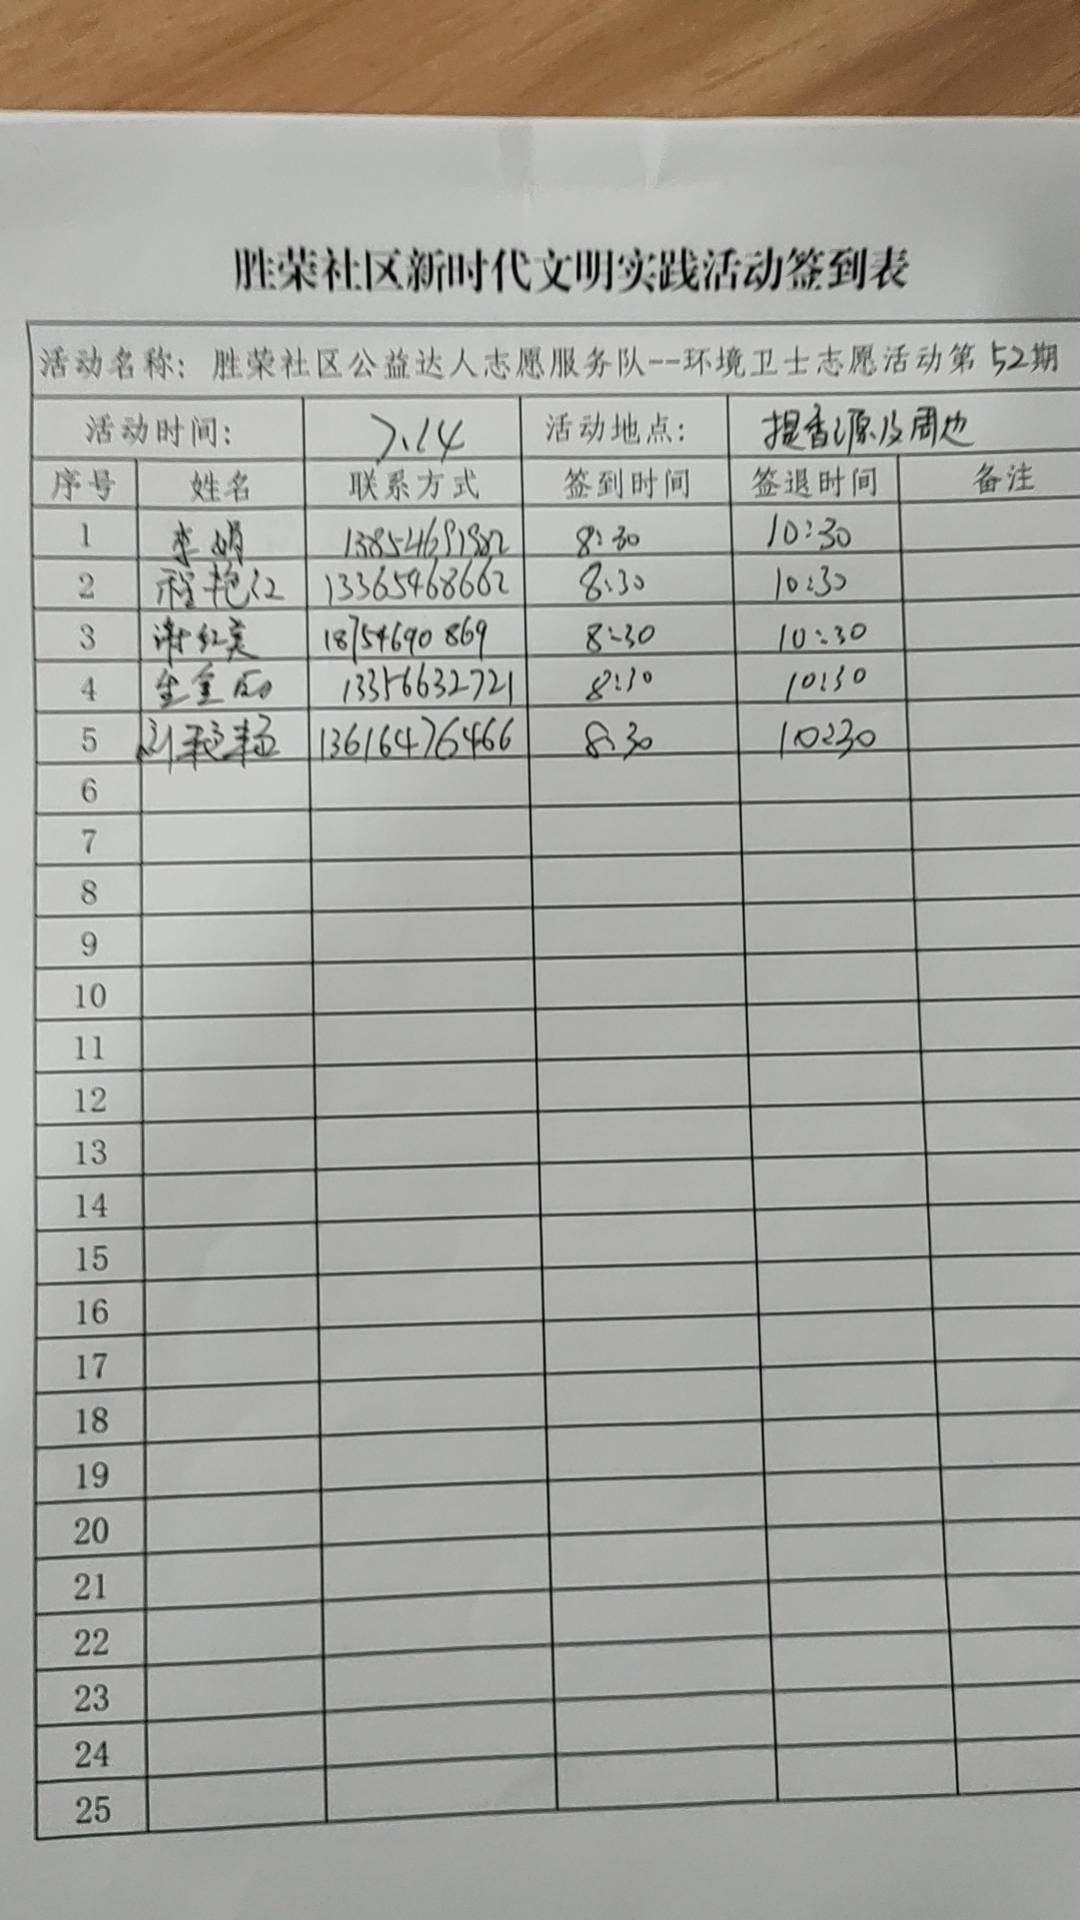 胜荣社区新时代文明实践活动签到表
活动名称：胜荣社区公益达人志愿服务队--环境卫士志愿活动第52期
活动时间： 7.14 活动地点： 提香源及周边
序号 姓名 联系方式 签到时间 签退时间 备注
1 李娟 8:30 10:30
2 程艳红 13365468662 8:30 10:30
3 谢红英 18754690869 8:30 10:30
4 13356632721 8:30 10:30
5 13616476466 8:30 10:30
6
7
8
9
10
11
12
13
14
15
16
17
18
19
20
21
22
23
24
25